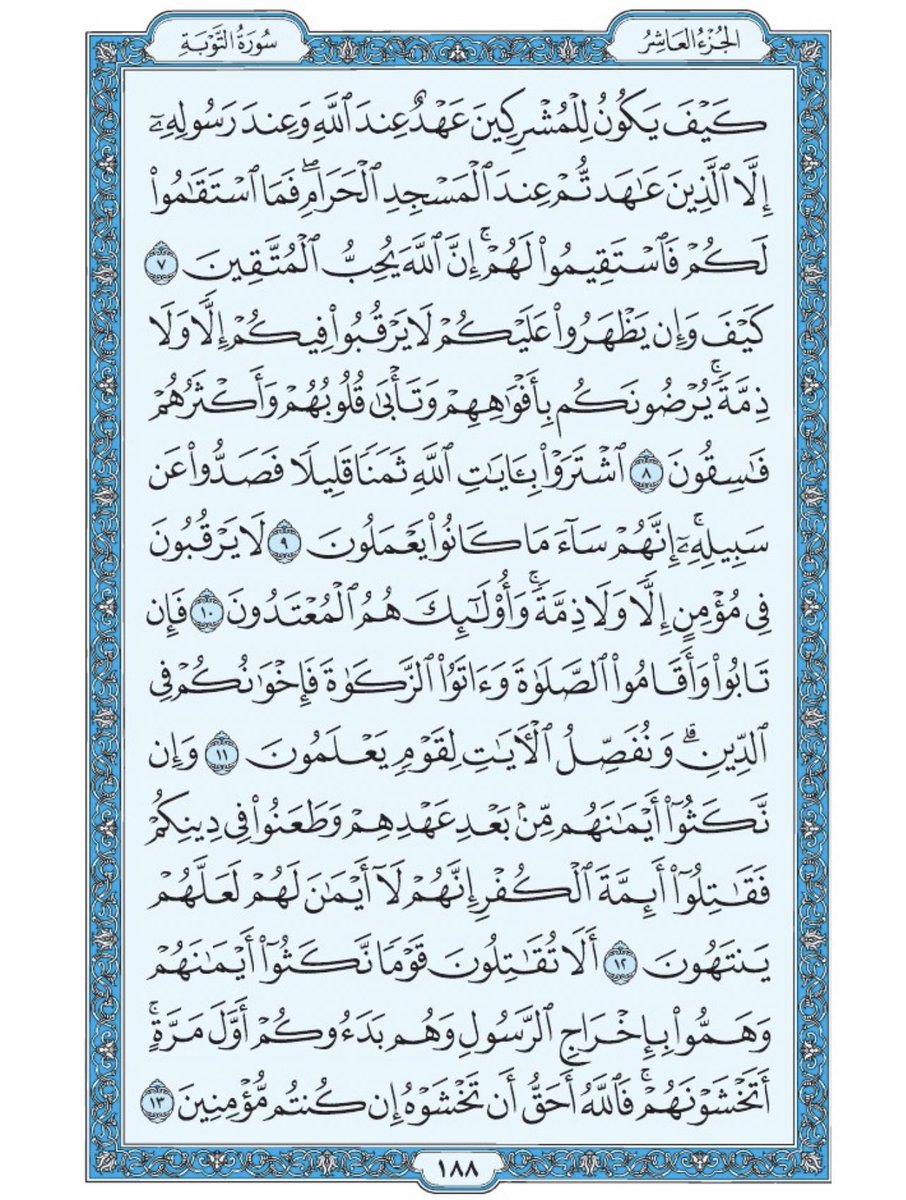 الجُزْءُ العَاشِرُ
سُورَةُ التَّوْبَةِ
كَيْفَ يَكُونُ لِلْمُشْرِكِينَ عَهْدٌ عِندَ ٱللَّهِ وَعِندَ رَسُولِهِۦٓ
إِلَّا ٱلَّذِينَ عَٰهَدتُّمْ عِندَ ٱلْمَسْجِدِ ٱلْحَرَامِۖ فَمَا ٱسْتَقَٰمُوا۟
لَكُمْ فَٱسْتَقِيمُوا۟ لَهُمْۚ إِنَّ ٱللَّهَ يُحِبُّ ٱلْمُتَّقِينَ ٧
كَيْفَ وَإِن يَظْهَرُوا۟ عَلَيْكُمْ لَا يَرْقُبُوا۟ فِيكُمْ إِلًّا وَلَا
ذِمَّةًۚ يُرْضُونَكُم بِأَفْوَٰهِهِمْ وَتَأْبَىٰ قُلُوبُهُمْ وَأَكْثَرُهُمْ
فَٰسِقُونَ ٨ ٱشْتَرَوْا۟ بِـَٔايَٰتِ ٱللَّهِ ثَمَنًا قَلِيلًا فَصَدُّوا۟ عَن
سَبِيلِهِۦٓۚ إِنَّهُمْ سَآءَ مَا كَانُوا۟ يَعْمَلُونَ ٩ لَا يَرْقُبُونَ
فِى مُؤْمِنٍ إِلًّا وَلَا ذِمَّةًۚ وَأُو۟لَٰٓئِكَ هُمُ ٱلْمُعْتَدُونَ ١٠ فَإِن
تَابُوا۟ وَأَقَامُوا۟ ٱلصَّلَوٰةَ وَءَاتَوُا۟ ٱلزَّكَوٰةَ فَإِخْوَٰنُكُمْ فِى
ٱلدِّينِۗ وَنُفَصِّلُ ٱلْـَٔايَٰتِ لِقَوْمٍ يَعْلَمُونَ ١١ وَإِن
نَّكَثُوٓا۟ أَيْمَٰنَهُم مِّنۢ بَعْدِ عَهْدِهِمْ وَطَعَنُوا۟ فِى دِينِكُمْ
فَقَٰتِلُوٓا۟ أَئِمَّةَ ٱلْكُفْرِ إِنَّهُمْ لَآ أَيْمَٰنَ لَهُمْ لَعَلَّهُمْ
يَنتَهُونَ ١٢ أَلَا تُقَٰتِلُونَ قَوْمًا نَّكَثُوٓا۟ أَيْمَٰنَهُمْ
وَهَمُّوا۟ بِإِخْرَاجِ ٱلرَّسُولِ وَهُم بَدَءُوكُمْ أَوَّلَ مَرَّةٍۚ
أَتَخْشَوْنَهُمْۚ فَٱللَّهُ أَحَقُّ أَن تَخْشَوْهُ إِن كُنتُم مُّؤْمِنِينَ ١٣
١٨٨